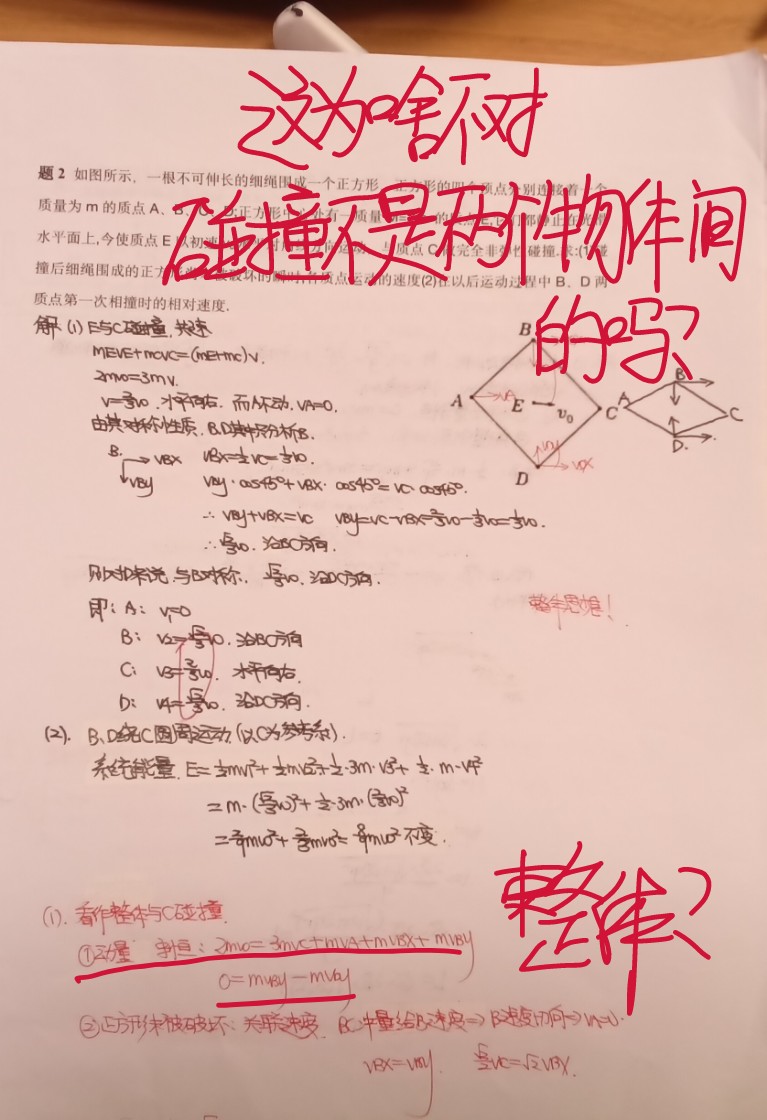 这为啥不对
碰撞不是两个物体间
的吗?
题 2 如图所示,一根不可伸长的细绳围成一个正方形,正方形的四个顶点分别连接着一个
质量为 m 的质点 A、B、
水平面上,今使质点 E 以初速 与质点 C 做完全非弹性碰撞.求:(1)碰
撞后细绳围成的正方形 被破坏的瞬时,各质点运动的速度(2)在以后运动过程中 B、D 两
质点第一次相撞时的相对速度.
解 (1) E与C碰撞,共速
mEvE+mCvC=(mE+mC)v.
2mv0=3mv.
v=⅔v0,水平向右,而A不动,vA=0.
B、D其中分析B.
B. vBX vBX=½vC=⅓v0.
vBy vBy·cos45°+vBX·cos45°=vC·cos45°.
∴vBy+vBX=vC vBy=vC-vBX=⅔v0-⅓v0=⅓v0.
∴ √2/3 v0,沿BC方向.
与B对称, √2/3 v0,沿DC方向.
即: A: v1=0
B: v2=√2/3 v0,沿BC方向
C: v3=⅔v0,水平向右.
D: v4=√2/3 v0,沿DC方向.
(2). B、D绕C圆周运动(以C为参考系).
系统能量 E=½mv1²+½mv2²+½·3m·v3²+½·m·v4²
=m·(√2/3 v0)²+½·3m·(⅔v0)²
=2/9mv0²+⅔mv0²=8/9mv0² 不变.
B
A E v0 C
D
vA
vBy
vBX
A B C
D
整体思想!
整体?
(1). 看作整体与C碰撞.
①动量 守恒: 2mv0=3mvC+mvA+mvBX+mvBy
0=mvBy-mvDy
②正方形未被破坏: 关联速度. BC冲量给B速度⇒B速度方向⇒vA=0.
vBX=vBy. √2/2 vC=√2 vBX.